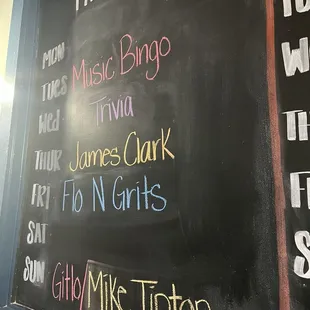 MON
TUES Music Bingo
Wed Trivia
THUR James Clark
FRI Flo N Grits
SAT
SUN Gitlo/Mike Tipton
W
TH